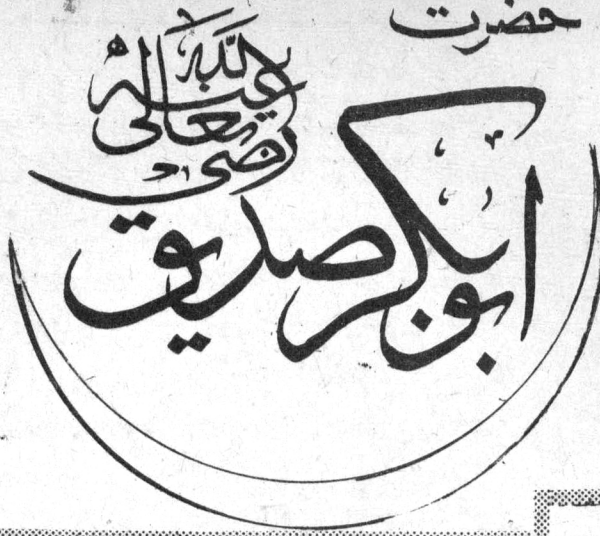 حضرت
ابوبکر صدیق
رضی اللہ تعالی عنہ